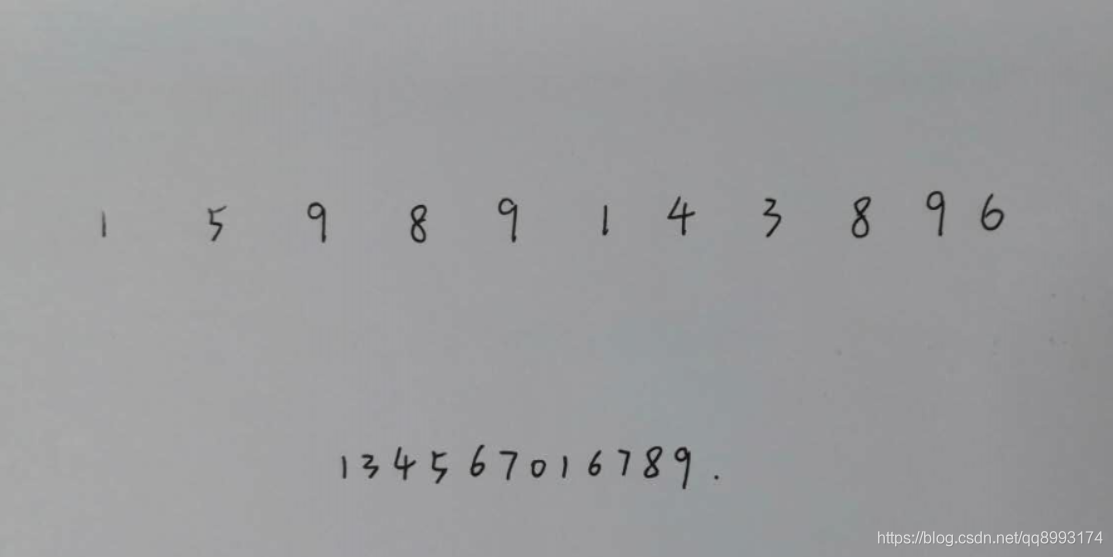 1 5 9 8 9 1 4 3 8 9 6
134567016789.
https://blog.csdn.net/qq8993174